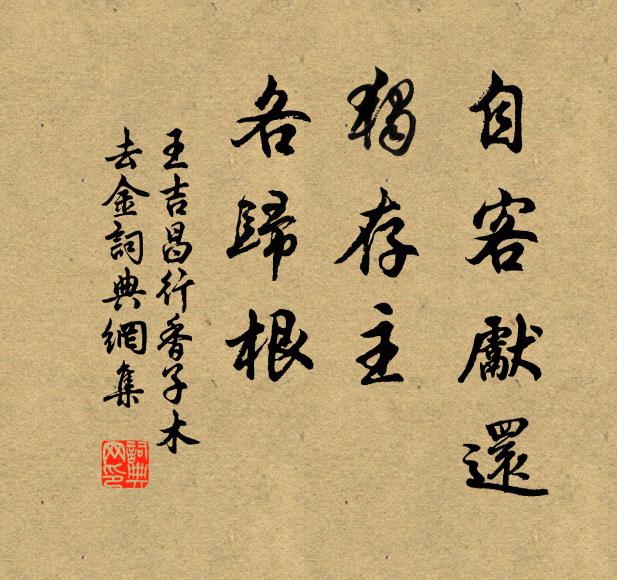 自客獻還
獨存主
各歸根
王吉昌行香子木
去金詞典網集
詞典網印